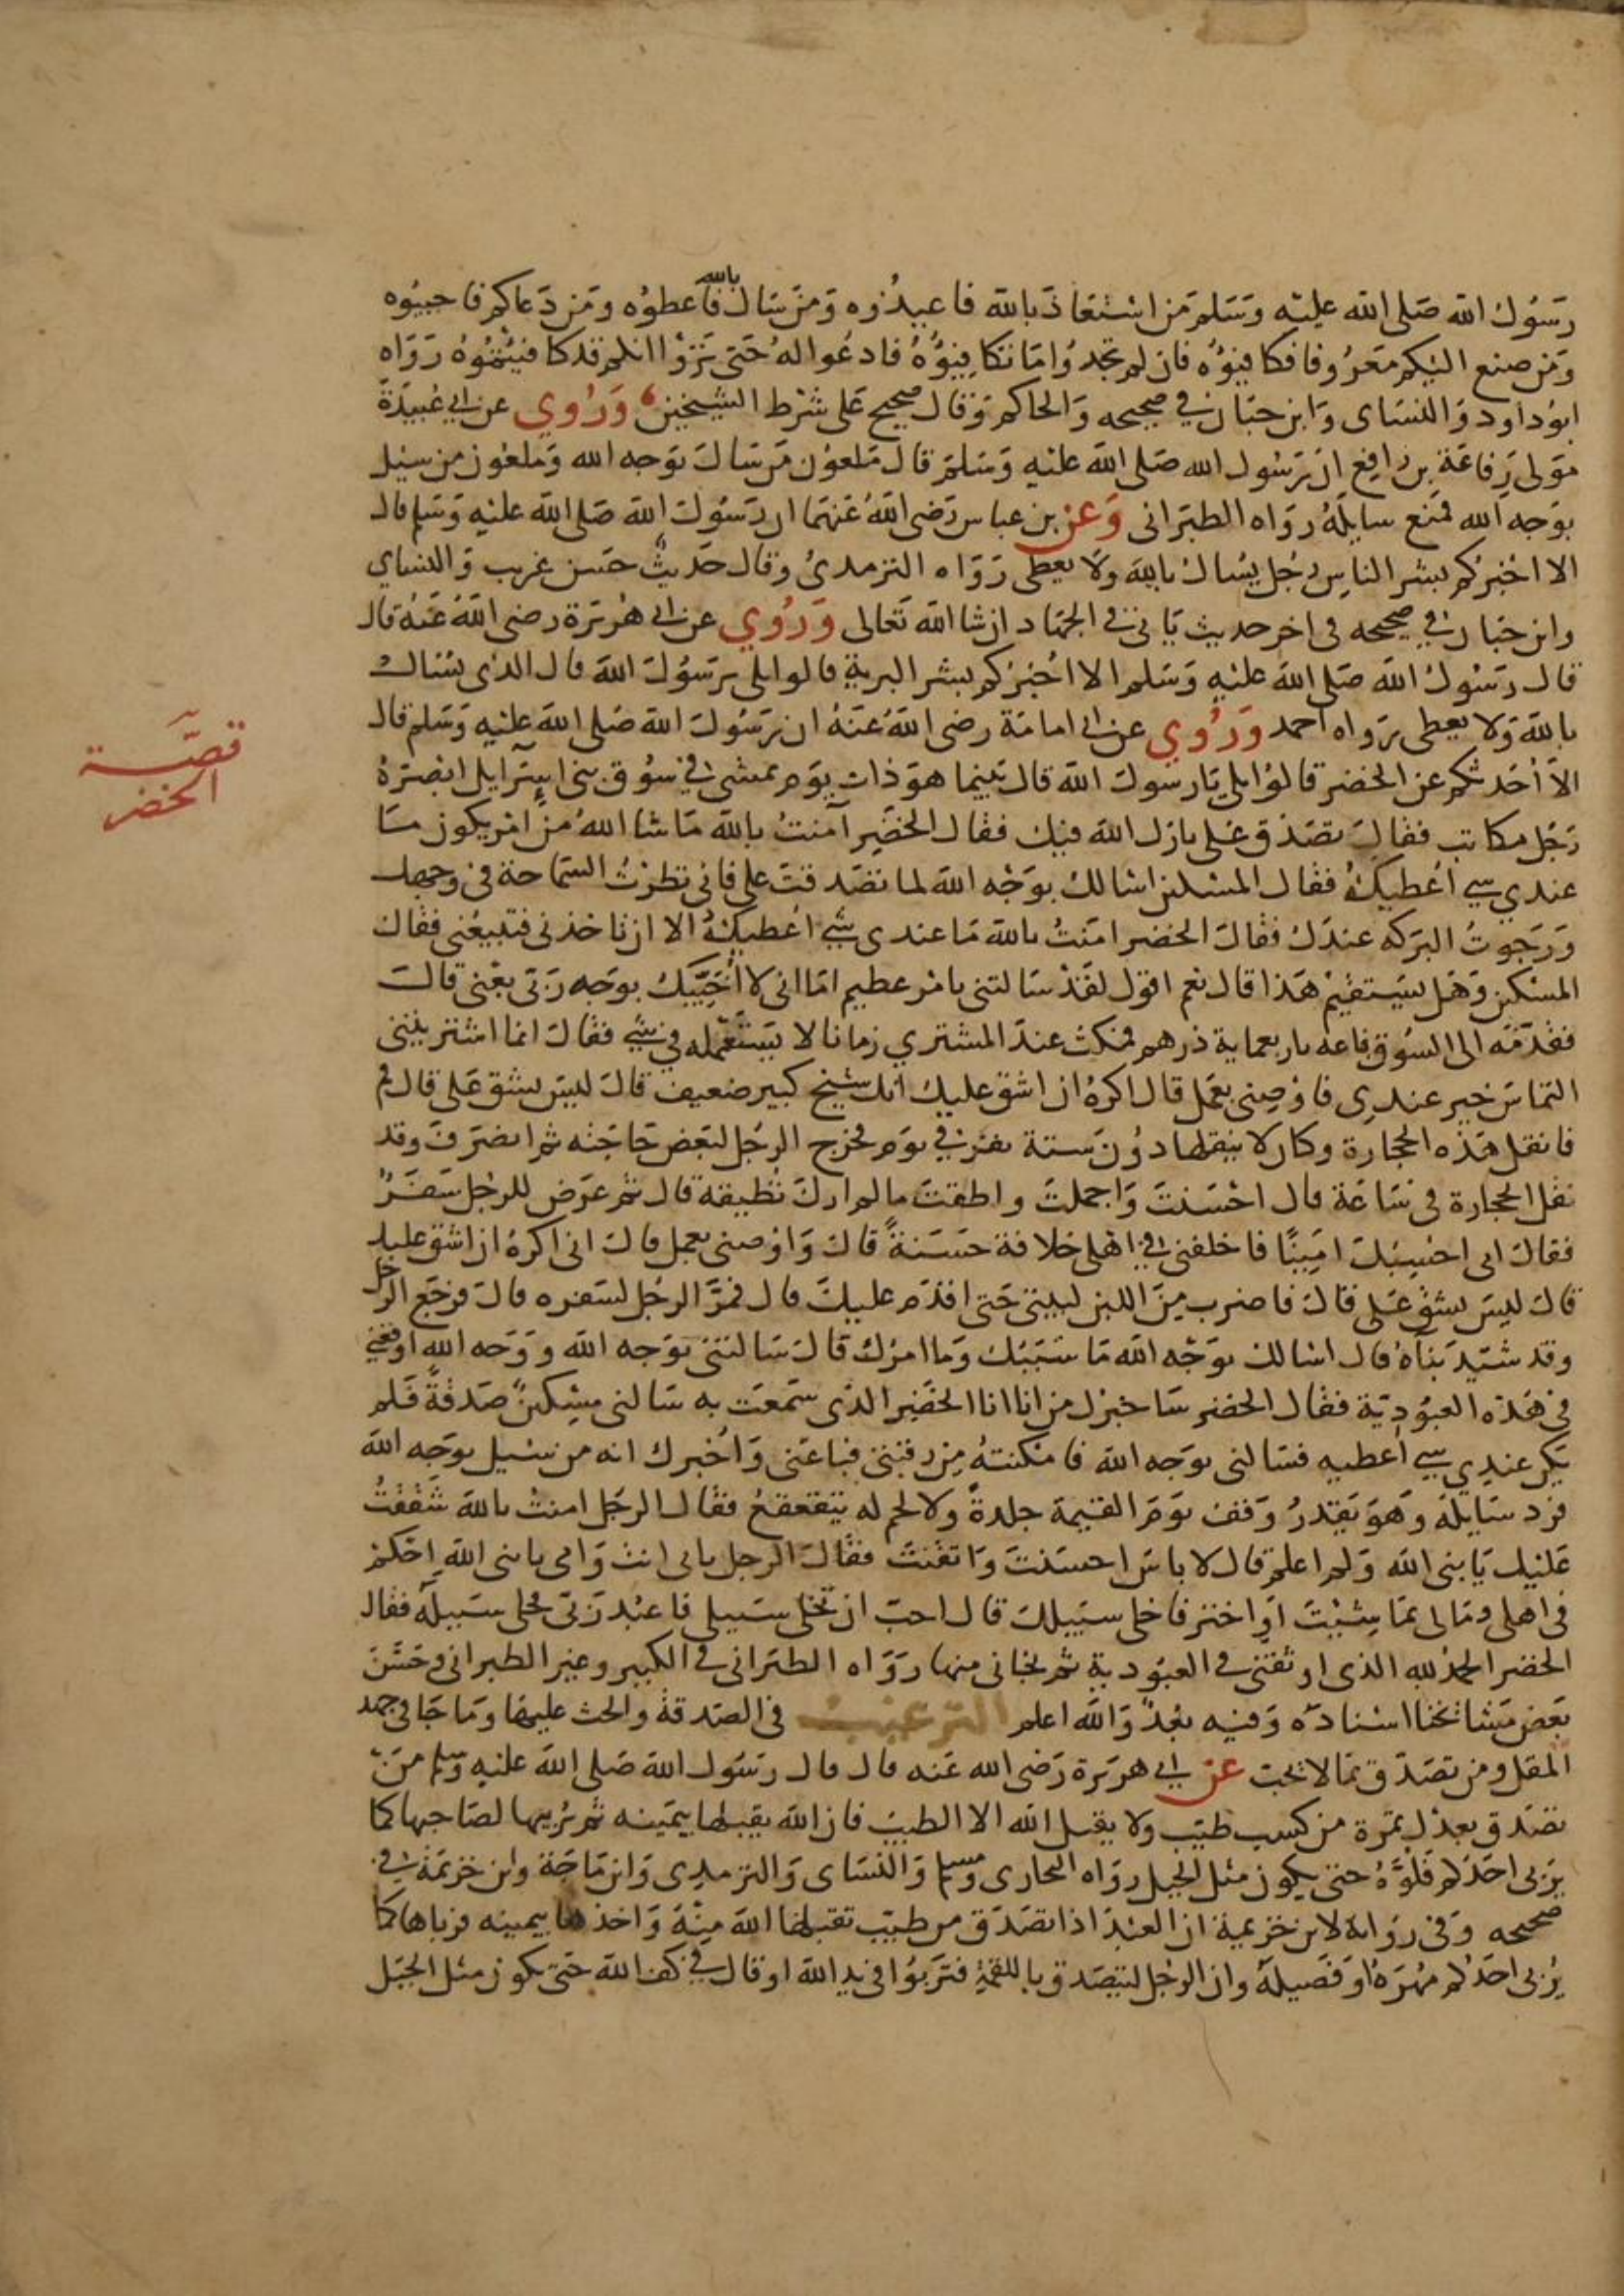 رسول الله صلى الله عليه وسلم من استعاذ بالله فاعيذوه ومن سال بالله فاعطوه ومن دعاكم فاجيبوه
ومن صنع اليكم معروفا فكافيوه فان لم تجدوا ما تكافيوه فادعوا له حتى تروا انكم قد كافيتموه رواه
ابو داود والنساى وابن حبان في صحيحه والحاكم وقال صحيح على شرط الشيخين وروي عن ابي عبيدة
مولى رفاعة بن رافع ان رسول الله صلى الله عليه وسلم قال ملعون من سال بوجه الله وملعون من سيل
بوجه الله فمنع سايله رواه الطبرانى وعن بن عباس رضى الله عنهما ان رسول الله صلى الله عليه وسلم قال
الا اخبركم بشر الناس رجل يسال بالله ولا يعطى رواه الترمدى وقال حديث حسن غريب والنساي
وابن حبان في صحيحه فى اخر حديث ياتى فى الجهاد ان شا الله تعالى وروي عن ابى هريرة رضى الله عنه قال
قال رسول الله صلى الله عليه وسلم الا اخبركم بشر البرية قالوا بلى يرسول الله قال الذى يسال
بالله ولا يعطى رواه احمد وروي عن ابى امامة رضى الله عنه ان رسول الله صلى الله عليه وسلم قال
الا احدثكم عن الخضر قالوا بلى يارسول الله قال بينما هو ذات يوم يمشى في سوق بنى اسرايل ابصره
رجل مكاتب فقال تصدق على بارك الله فيك فقال الخضر آمنت بالله ما شا الله من امر يكون ما
عندي شي اعطيكه فقال المسكين اسالك بوجه الله لما تصدقت على فانى نظرت السماحة فى وجهك
ورجوت البركه عندك فقال الخضر امنت بالله ما عندى شي اعطيكه الا ان تاخذنى فتبيعنى فقال
المسكين وهل يستقيم هذا قال نعم اقول لقد سالتنى بامر عظيم اما انى لا اخيبك بوجه ربى بعنى قال
فقدمه الى السوق فباعه باربعماية درهم فمكث عند المشتري زمانا لا يستعمله في شي فقال انما اشتريتنى
التماس خير عندى فاوصنى بعمل قال اكره ان اشق عليك انك شيخ كبير ضعيف قال ليس يشق على قال قم
فانقل هذه الحجارة وكان لا ينقلها دون ستة نفر في يوم فخرج الرجل لبعض حاجته ثم انصرف وقد
نقل الحجارة فى ساعة قال احسنت واجملت واطقت ما لم ارك تطيقه قال ثم عرض للرجل سفر
فقال انى احسبك امينا فاخلفنى في اهلى خلافة حسنة قال واوصنى بعمل قال انى اكره ان اشق عليك
قال ليس يشق على قال فاضرب من اللبن لبيتى حتى اقدم عليك قال فمر الرجل لسفره قال فرجع الرجل
وقد شيد بناه قال اسالك بوجه الله ما سببك وما امرك قال سالتنى بوجه الله ووجه الله اوقعنى
فى هذه العبودية فقال الخضر ساخبرك من انا انا الخضر الذى سمعت به سالنى مسكين صدقة فلم
يكن عندي شي اعطيه فسالنى بوجه الله فامكنته من رقبتى فباعنى واخبرك انه من سيل بوجه الله
فرد سايله وهو يقدر وقف يوم القيمة جلدة ولا لحم له يتقعقع فقال الرجل امنت بالله شققت
عليك يا نبى الله ولم اعلم قال لا باس احسنت واتقنت فقال الرجل بابى انت وامى يا نبى الله احكم
فى اهلى ومالى بما شيت او اختر فاخلى سبيلك قال احب ان تخلى سبيلى فاعبد ربى فخلى سبيله فقال
الخضر الحمد لله الذى اوثقنى فى العبودية ثم نجانى منها رواه الطبرانى فى الكبير وغير الطبرانى وحسن
بعض مشائخنا اسناده وفيه بعد والله اعلم الترغيب فى الصدقة والحث عليها وما جا فى جهد
المقل ومن تصدق بما لا يحب عن ابي هريرة رضى الله عنه قال قال رسول الله صلى الله عليه وسلم من
تصدق بعدل تمرة من كسب طيب ولا يقبل الله الا الطيب فان الله يقبلها بيمينه ثم يربيها لصاحبها كما
يربى احدكم فلوه حتى يكون مثل الجبل رواه البخارى ومسلم والنساى والترمدى وابن ماجة وابن خزيمة في
صحيحه وفى رواية لابن خزيمة ان العبد اذا تصدق من طيب تقبلها الله منه واخذها بيمينه فرباها كما
يربى احدكم مهره او فصيله وان الرجل ليتصدق باللقمة فتربوا فى يد الله او قال في كف الله حتى تكون مثل الجبل
قصة
الخضر